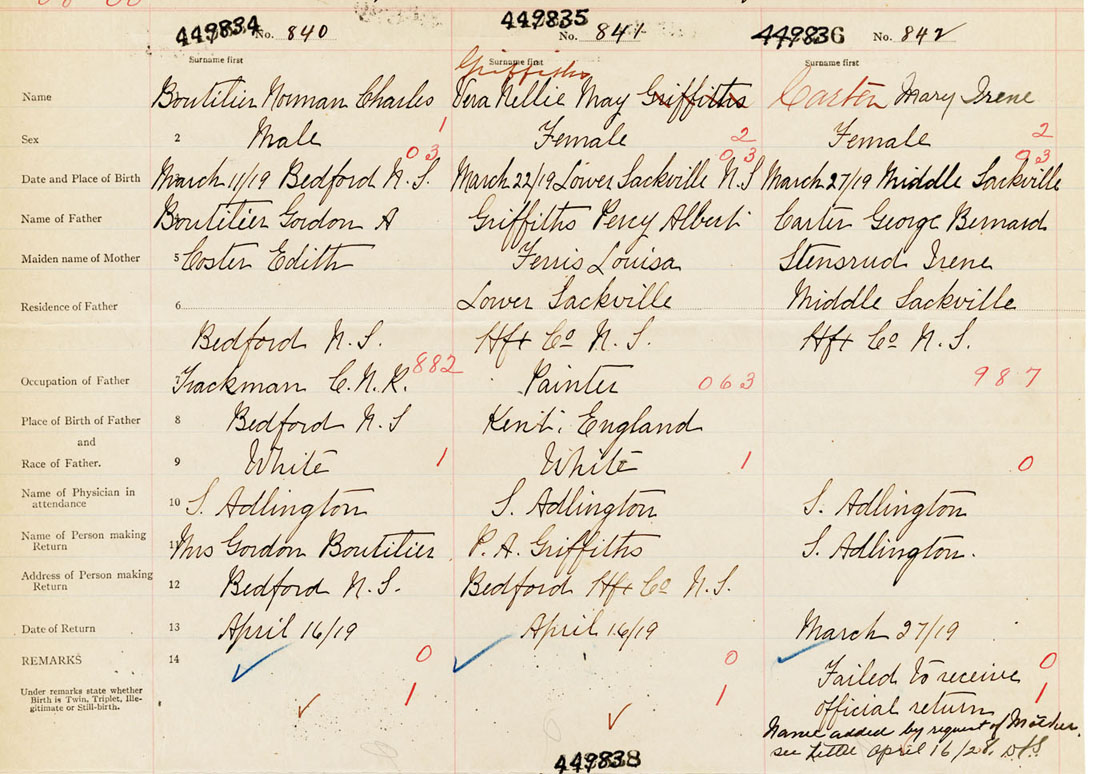 449834 449835 449836
No. 840 No. 841 No. 842
Surname first Surname first Surname first
Griffiths
Name Boutilier Norman Charles Vera Nellie May Griffiths Carter Mary Irene
1 2 2
Sex 2 Male Female Female
03 03 03
Date and Place of Birth March 11/19 Bedford N.S. March 22/19 Lower Sackville N.S March 27/19 Middle Sackville
Name of Father Boutilier Gordon A Griffiths Percy Albert Carter George Bernard
Maiden name of Mother 5 Coster Edith Ferris Louisa Stensrud Irene
Residence of Father 6 Lower Sackville Middle Sackville
Bedford N.S. Hfx Co N.S. Hfx Co N.S.
882
Occupation of Father 7 Trackman C.N.R. Painter 063 987
Place of Birth of Father 8 Bedford N.S Kent, England
and
Race of Father. 9 White 1 White 1 0
Name of Physician in
attendance 10 S. Adlington S. Adlington S. Adlington
Name of Person making
Return 11 Mrs Gordon Boutilier P. A. Griffiths S. Adlington.
Address of Person making
Return 12 Bedford N.S. Bedford Hfx Co N.S.
Date of Return 13 April 16/19 April 16/19 March 27/19
REMARKS 14 0 0 Failed to receive 0
Under remarks state whether
Birth is Twin, Triplet, Ille-
gitimate or Still-birth.
1 1 official return 1
Name added by request of Mother.
see Letter April 16/28.
449838